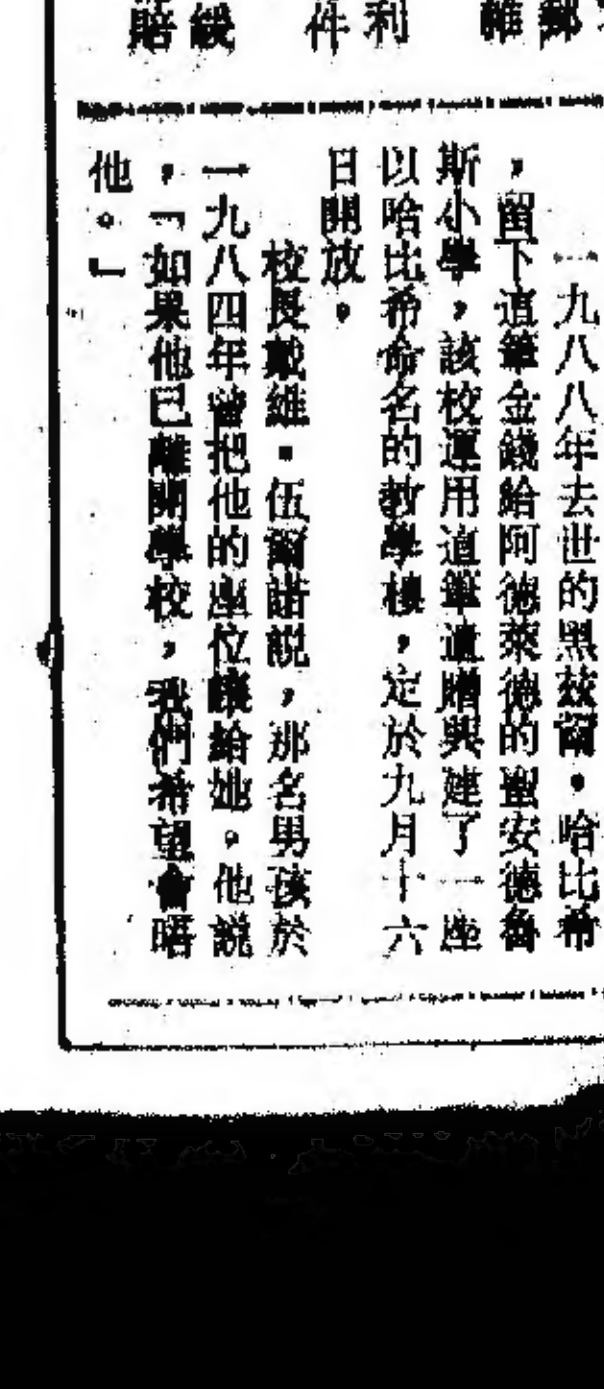 一九八八年去世的黑茲爾・哈比希
，留下這筆金錢給阿德萊德的聖安德魯
斯小學，該校運用這筆遺贈興建了一座
以哈比希命名的教學樓，定於九月十六
日開放。
校長戴維・伍爾諾說，那名男孩於
一九八四年曾把他的座位讓給她。他說
，「如果他已離開學校，我們希望會晤
他。」